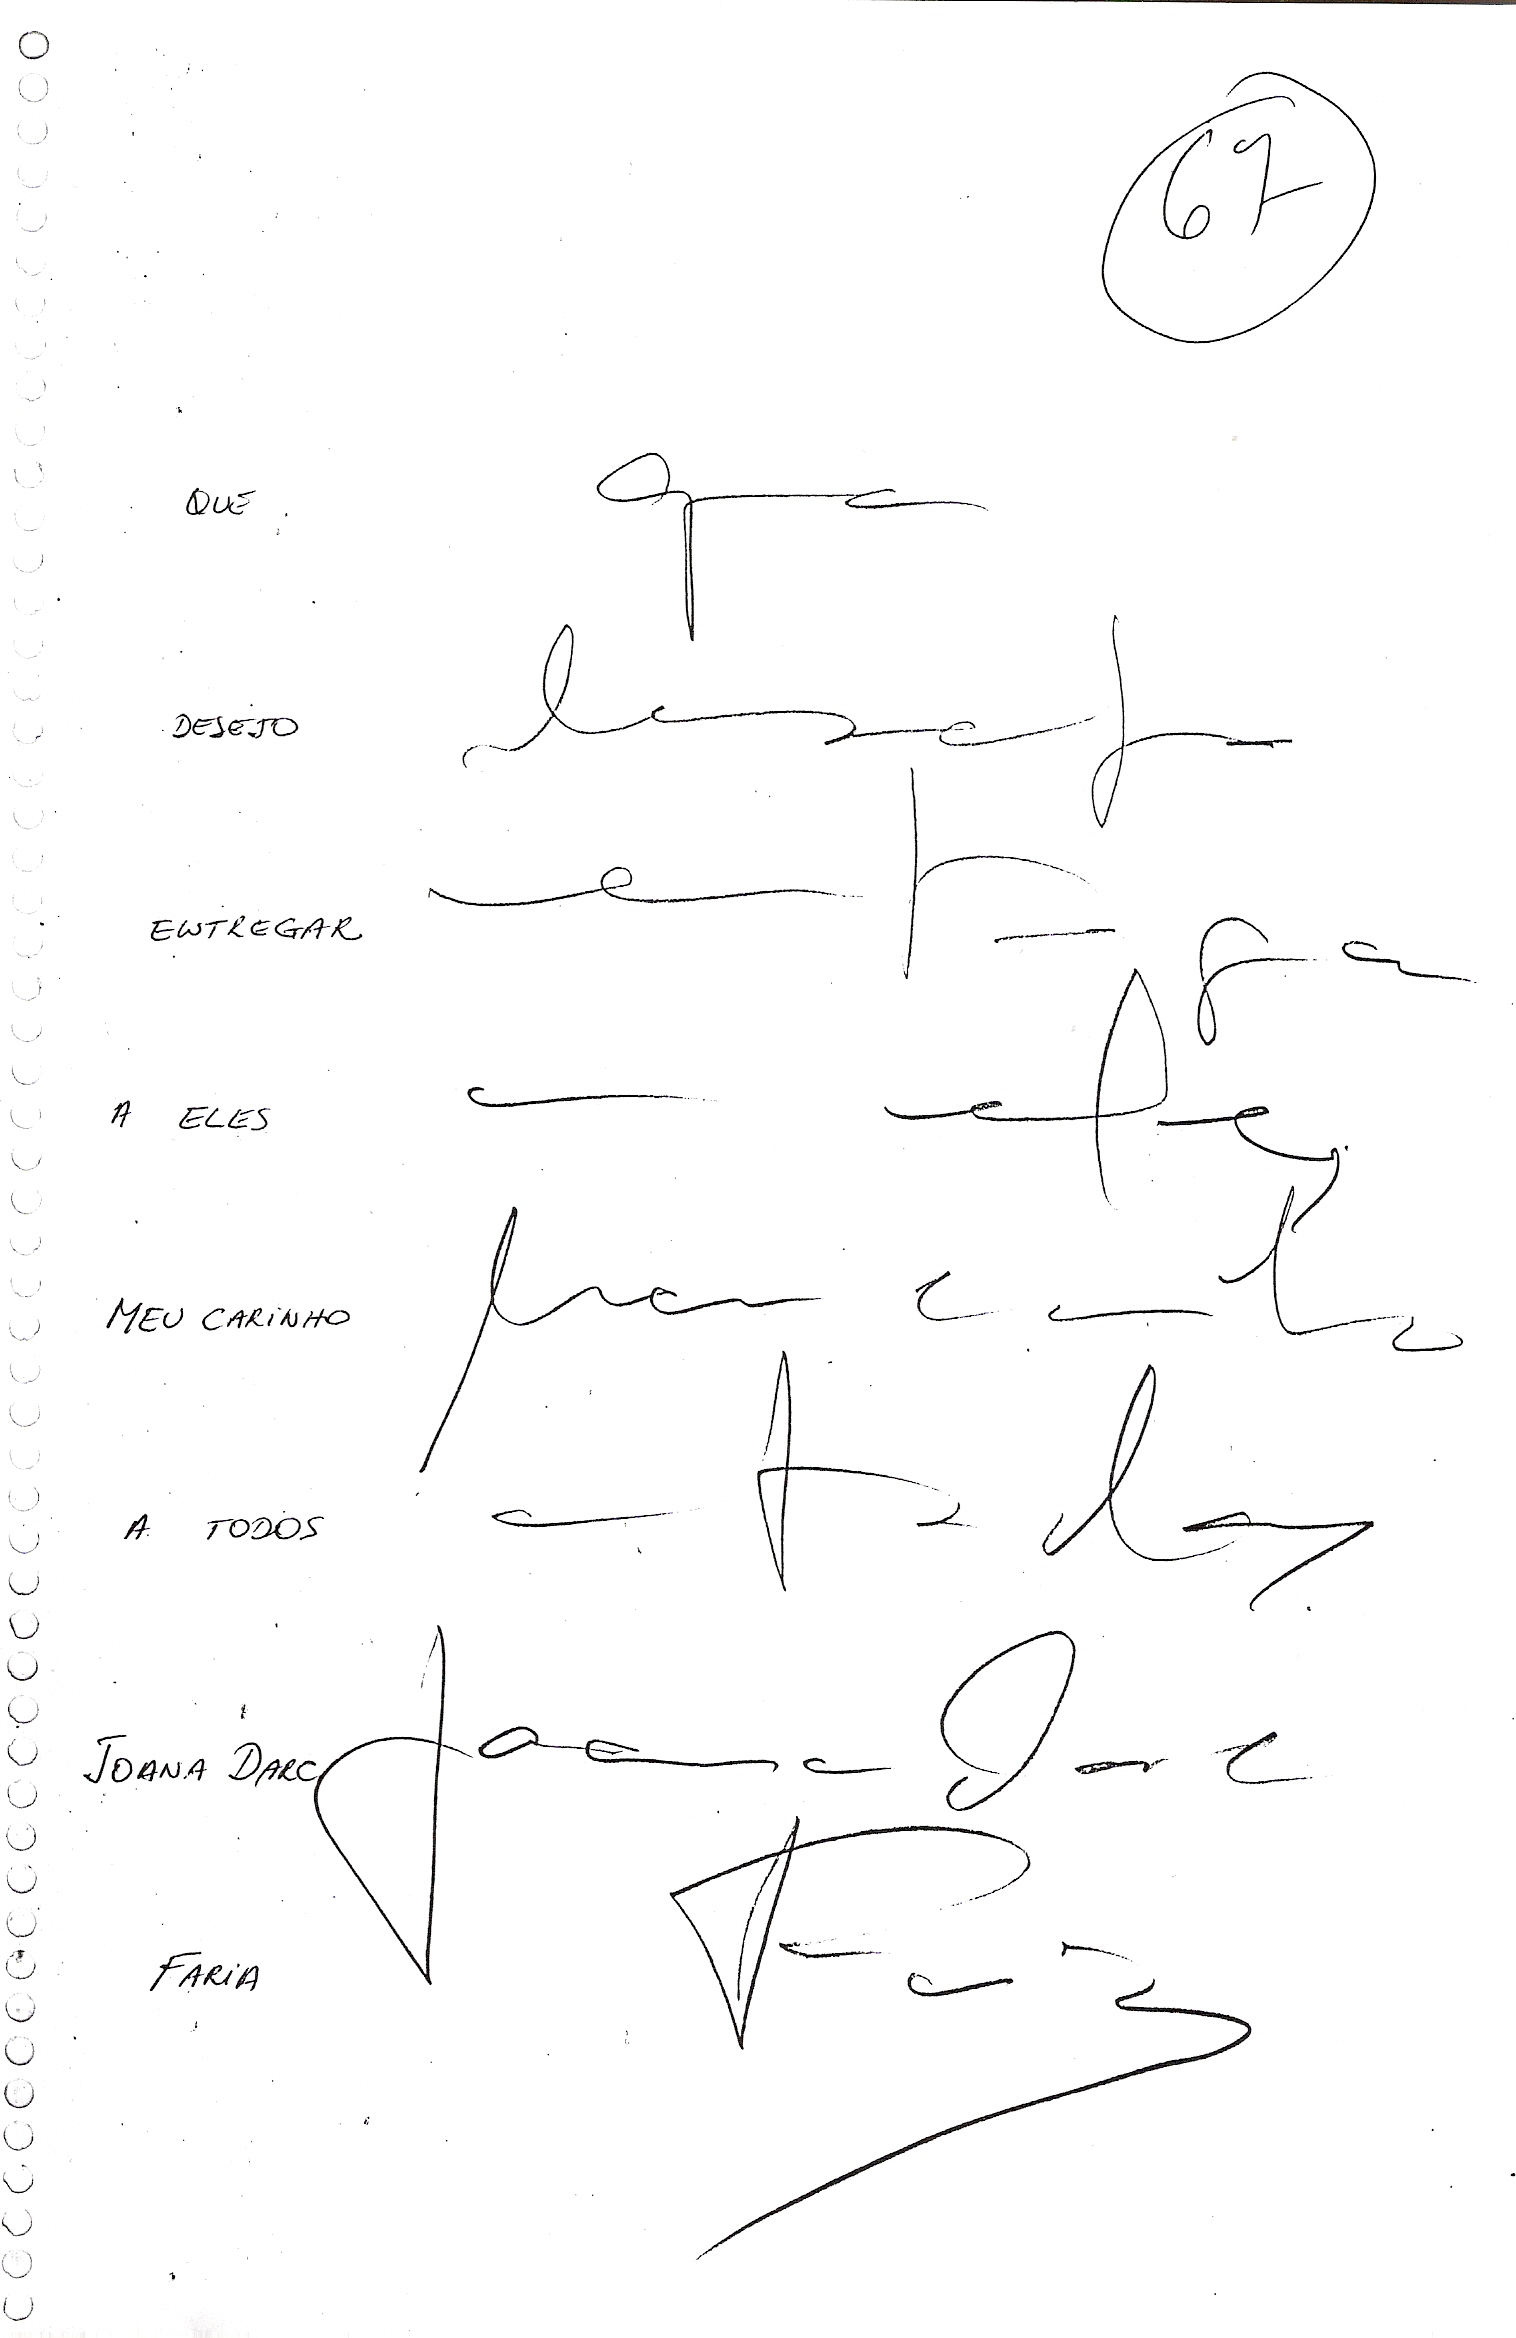 67
QUE que
DESEJO desejo
ENTREGAR entrega
A ELES a eles
MEU CARINHO meu carinho
A TODOS a todos
JOANA DARC Joana Darc
FARIA Faria